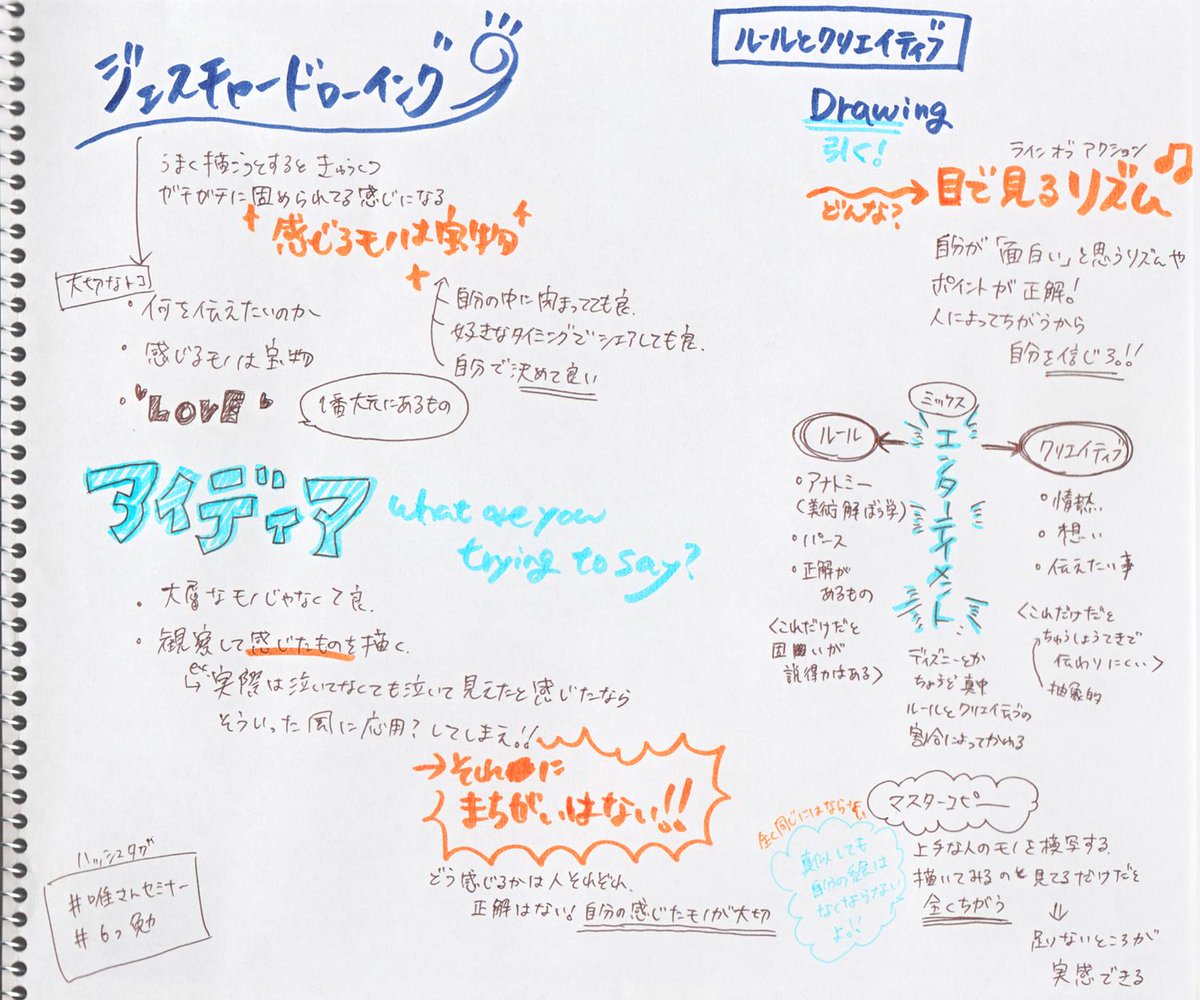 ジェスチャードローイング
うまく描こうとすると きゅうくつ
ガチガチに固められてる感じになる
感じるモノは宝物
大切なトコ
・何を伝えたいのか
・感じるモノは宝物
・"LOVE"
1番大元にあるもの
自分の中に閉まってても良.
好きなタイミングでシェアしても良.
自分で決めて良い
アイディア
what are you
trying to say?
・大層なモノじゃなくて良.
・観察して感じたものを描く.
ex
実際は泣いてなくても泣いて見えたと感じたなら
そういった風に応用?してしまえ!!
→それ に
まちがいはない!!
どう感じるかは人それぞれ.
正解はない!自分の感じたモノが大切
ハッシュタグ
#唯さんセミナー
#6つ勉
ルールとクリエイティブ
Drawing
引く!
どんな?
ラインオブアクション
目で見るリズム
自分が「面白い」と思うリズムや
ポイントが正解!
人によってちがうから
自分を信じろ。!!
ミックス
エンターテイメント
ルール
・アナトミー
(美術解ぼう学)
・パース
・正解が
あるもの
<これだけだと
固いが
説得力はある>
クリエイティブ
・情熱
・想い
・伝えたい事
<これだけだと
ちゅうしょうてきで
伝わりにくい>
抽象的
ディズニーとか
ちょうど真中
ルールとクリエイティブの
割合によってかわる
マスターコピー
上手な人のモノを模写する.
描いてみるのと見てるだけだと
全くちがう
⇓
足りないところが
実感できる
全く同じにはならない
真似しても
自分の絵は
なくならない
よ!!